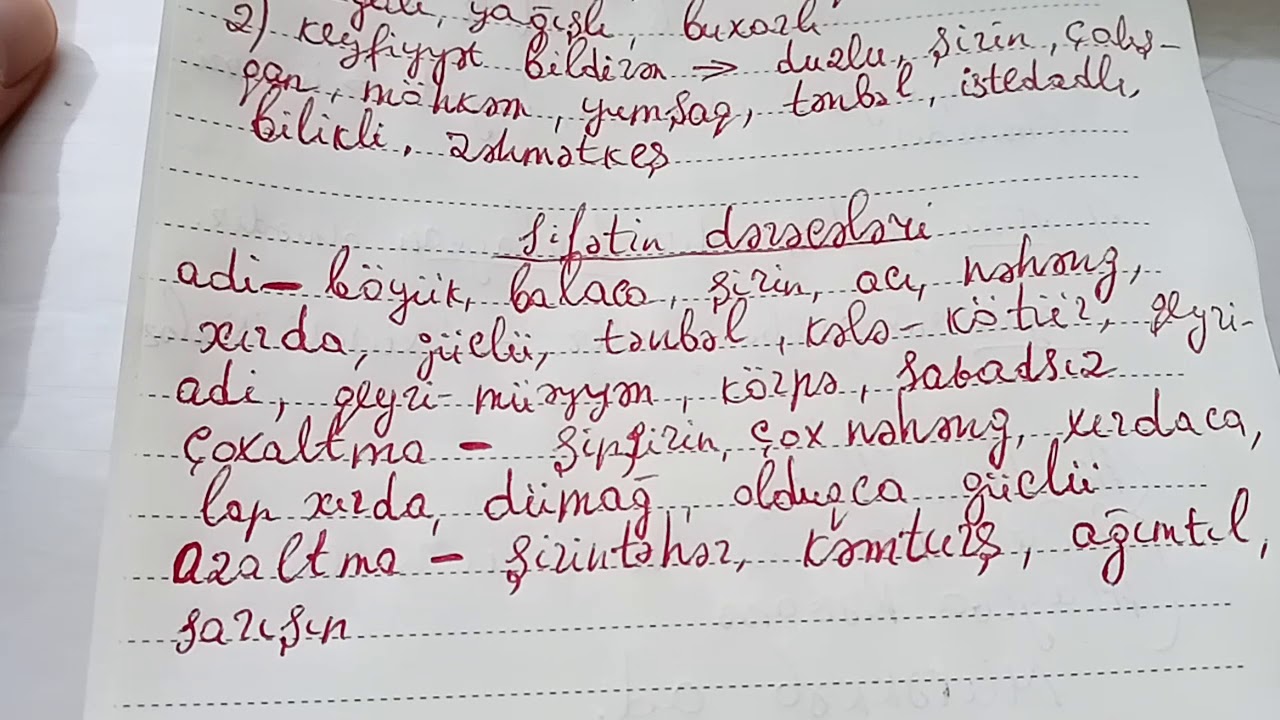 yağışlı, buxarlı
2) keyfiyyət bildirən → duzlu, şirin, çalış-
qan, möhkəm, yumşaq, tənbəl, istedadlı,
bilikli, zəhmətkeş
Sifətin dərəcələri
adi – böyük, balaca, şirin, acı, nəhəng,
xırda, güclü, tənbəl, kələ-kötür, qeyri-
adi, qeyri-müəyyən, körpə, savadsız
çoxaltma – şipşirin, çox nəhəng, xırdaca,
lap xırda, dümağ, olduqca güclü
Azaltma – şirintəhər, kəmturş, ağımtıl,
sarışın